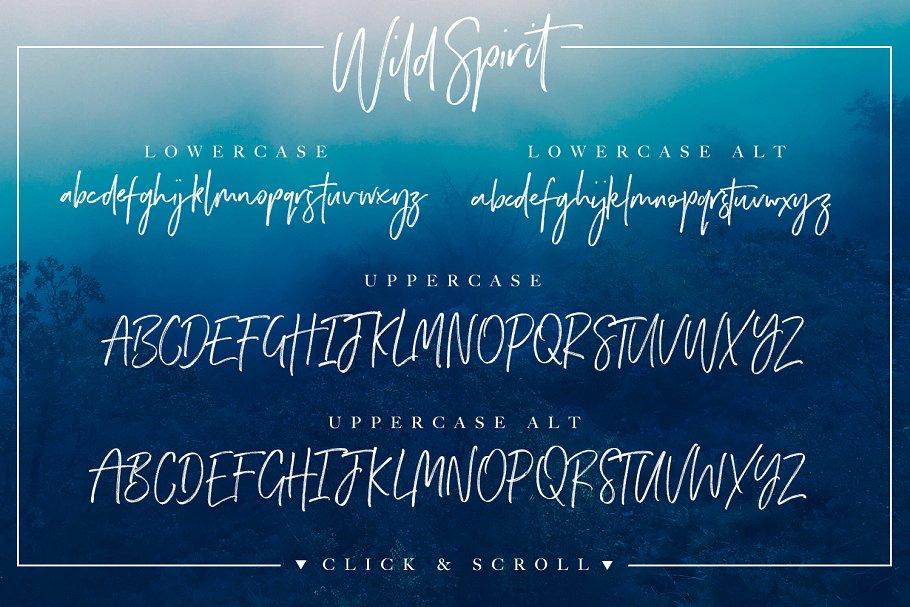 Wild Spirit
LOWERCASE
abcdefghijklmnopqrstuvwxyz
LOWERCASE ALT
abcdefghijklmnopqrstuvwxyz
UPPERCASE
ABCDEFGHIJKLMNOPQRSTUVWXYZ
UPPERCASE ALT
ABCDEFGHIJKLMNOPQRSTUVWXYZ
▼ CLICK & SCROLL ▼